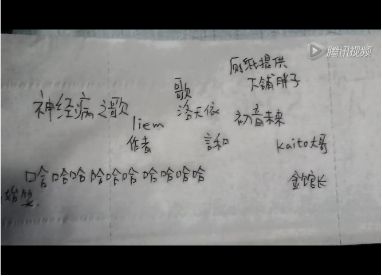 腾讯视频
厕纸提供
大铺胖子
歌
神经病之歌
洛天依
初音未来
liem
作者
言和
kaito大哥
哈哈哈哈哈哈哈哈哈哈哈
金馆长